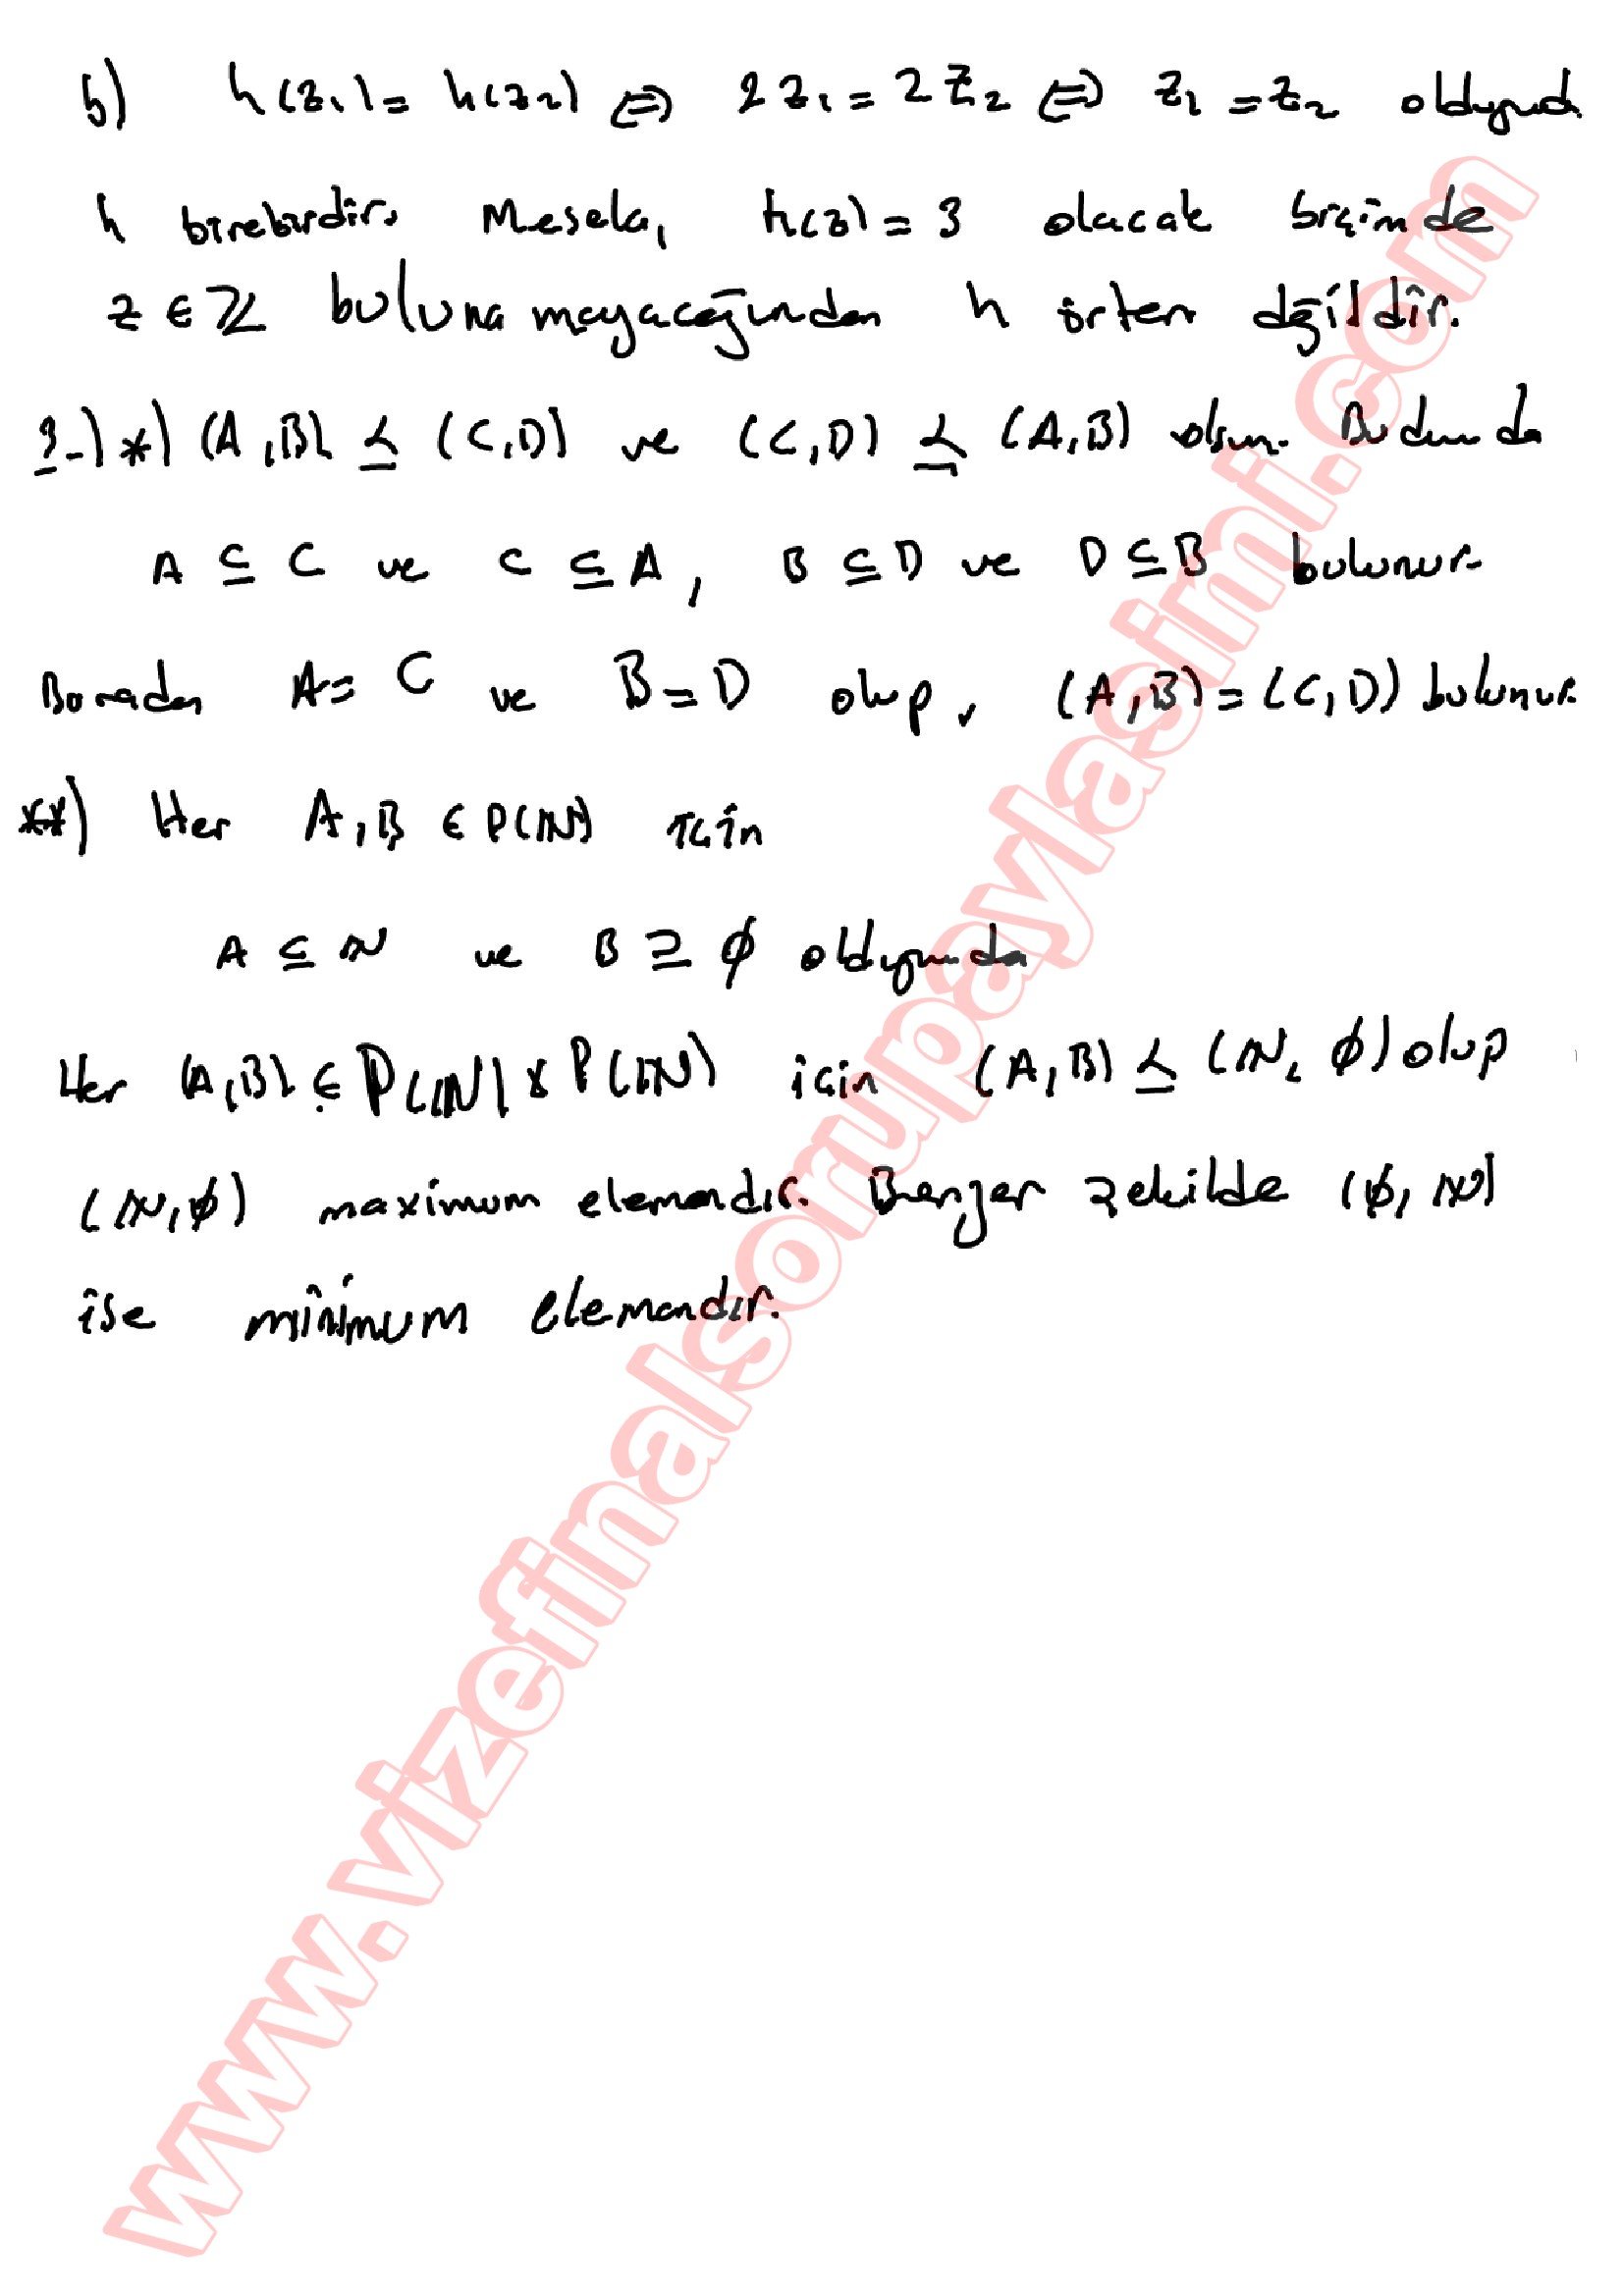 b) h(z₁) = h(z₂) ⇔ 2z₁ = 2z₂ ⇔ z₁ = z₂ olduğunda
h birebirdir. Mesela, h(z) = 3 olacak biçimde
z ∈ ℤ bulunamayacağından h örten değildir.
3-) *) (A,B) ⪯ (C,D) ve (C,D) ⪯ (A,B) olsun. Bu durumda
A ⊆ C ve C ⊆ A, B ⊆ D ve D ⊆ B bulunur.
Buradan A = C ve B = D olup, (A,B) = (C,D) bulunur.
**) Her A,B ∈ P(ℕ) için
A ⊆ ℕ ve B ⊇ ∅ olduğunda
Her (A,B) ∈ P(ℕ) x P(ℕ) için (A,B) ⪯ (ℕ, ∅) olup
(ℕ,∅) maximum elemandır. Benzer şekilde (∅, ℕ)
ise minimum elemandır.
www.vizefinalsorupaylasimi.com